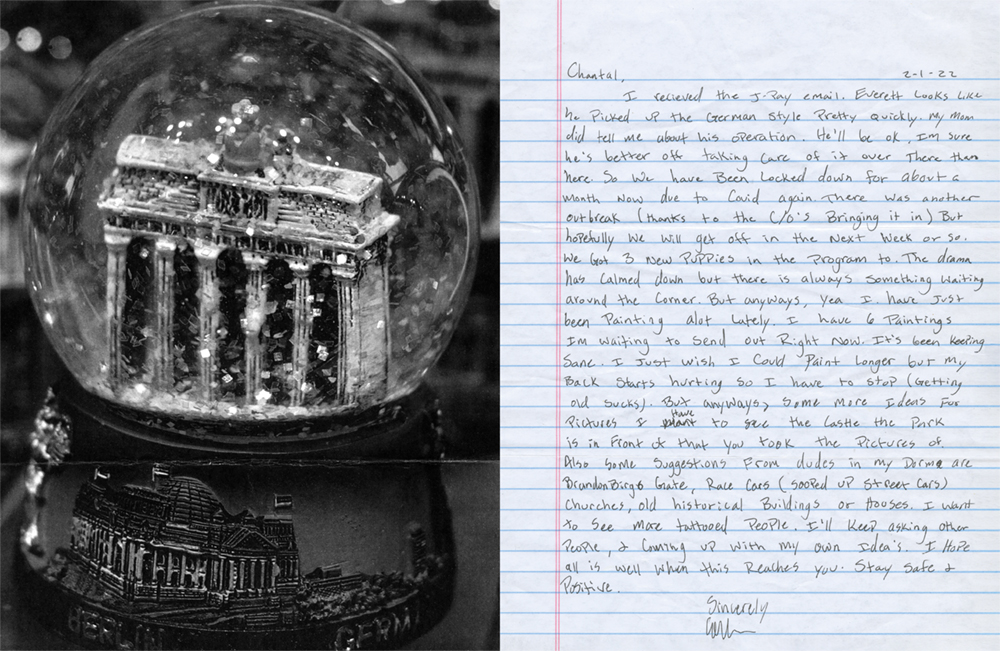 BERLIN
GERM
Chantal,
2-1-22
I recieved the J-Pay email. Everett Looks Like
he Picked up the German Style Pretty quickly. My mom
did tell me about his operation. He'll be ok, Im sure
he's better off taking Care of it over There then
here. So We have Been Locked down for about a
month Now due to Covid again. There was another
outbreak (thanks to the C/O's Bringing it in) But
hopefully We will get off in the Next Week or so.
We Got 3 New Puppies in the Program to. The drama
has Calmed down but there is always Something Waiting
around the Corner. But anyways, Yea I have Just
been Painting alot Lately. I have 6 Paintings
Im waiting to Send out Right Now. It's been keeping
Sane. I Just wish I Could Paint Longer but my
Back Starts hurting So I have to stop (Getting
old Sucks). But anyways, Some more Ideas For
Pictures I Have to see the Castle the Park
is in Front of that you took the Pictures of.
Also Some Suggestions From dudes in my Dorm are
BrandonBirgo Gate, Race Cars (Sooped up Street Cars)
Churches, old historical Buildings or Houses. I want
to See more tattooed People. I'll Keep asking other
People, & Coming up With my own Idea's. I Hope
all is well When this Reaches you. Stay Safe &
Positive.
Sincerely